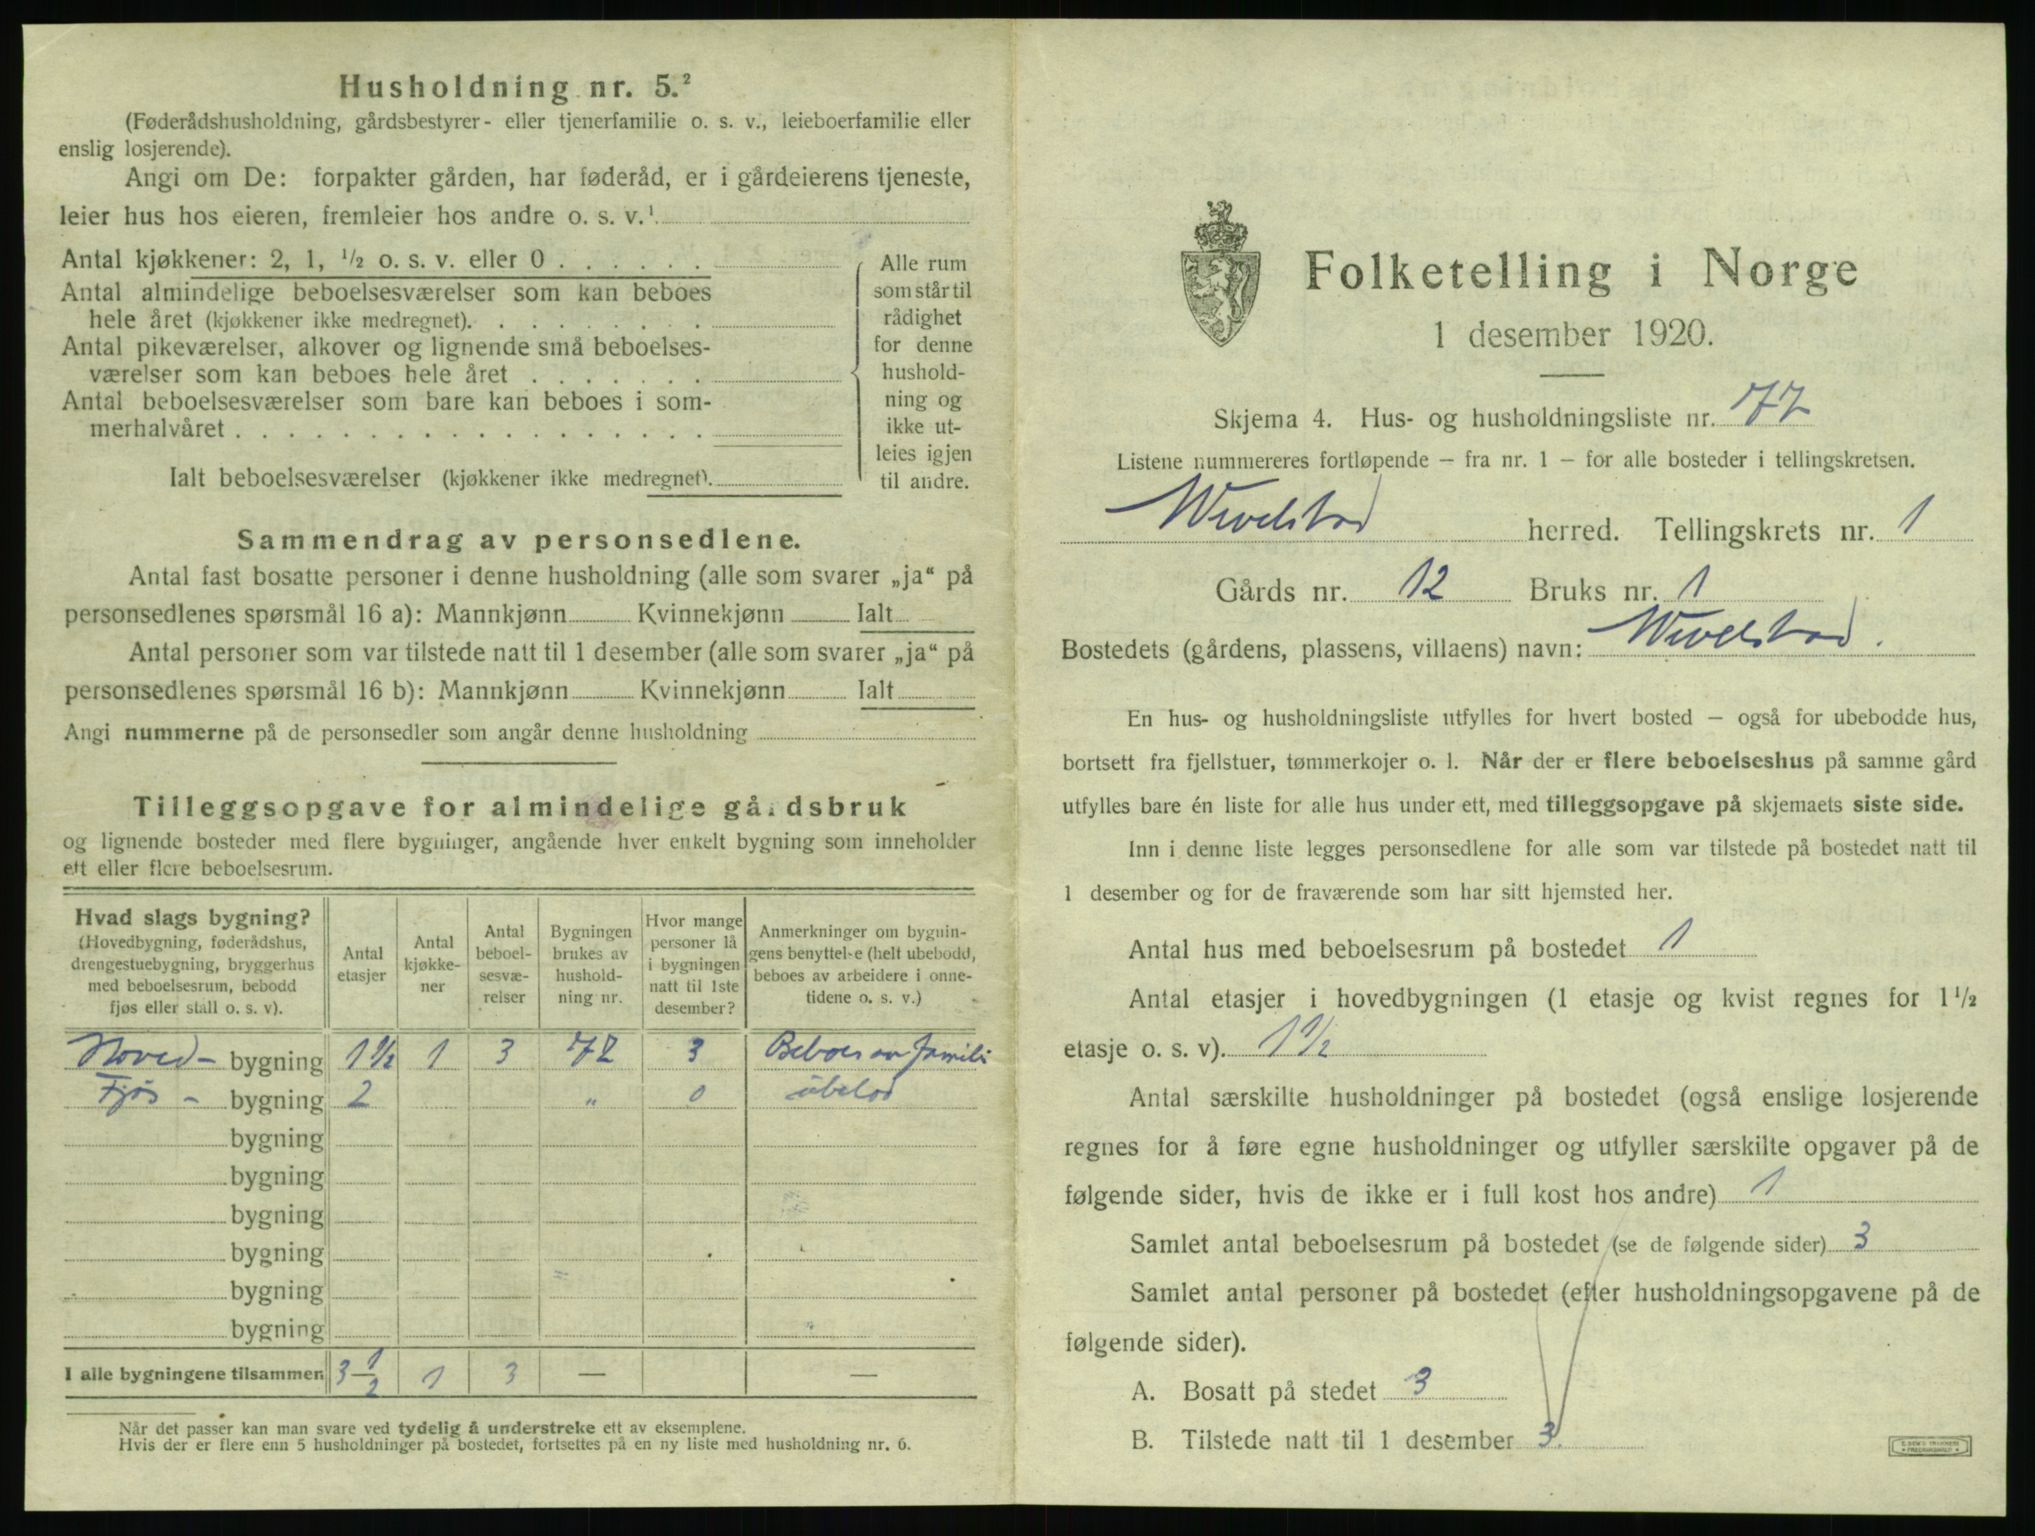 Husholdning nr. 5.²
(Føderådshusholdning, gårdsbestyrer- eller tjenerfamilie o. s. v., leieboerfamilie eller
enslig losjerende).
Angi om De: forpakter gården, har føderåd, er i gårdeierens tjeneste,
leier hus hos eieren, fremleier hos andre o. s. v.¹
Antal kjøkkener: 2, 1, ½ o. s. v. eller 0 . . . . . .
Antal almindelige beboelsesværelser som kan beboes
hele året (kjøkkener ikke medregnet). . . . . . . . .
Antal pikeværelser, alkover og lignende små beboelses-
værelser som kan beboes hele året . . . . . . .
Antal beboelsesværelser som bare kan beboes i som-
merhalvåret . . . . . . . . . . . . . . . . . .
Ialt beboelsesværelser (kjøkkener ikke medregnet).
Alle rum
som står til
rådighet
for denne
hushold-
ning og
ikke ut-
leies igjen
til andre.
Sammendrag av personsedlene.
Antal fast bosatte personer i denne husholdning (alle som svarer „ja“ på
personsedlenes spørsmål 16 a): Mannkjønn Kvinnekjønn Ialt
Antal personer som var tilstede natt til 1 desember (alle som svarer „ja“ på
personsedlenes spørsmål 16 b): Mannkjønn Kvinnekjønn Ialt
Angi nummerne på de personsedler som angår denne husholdning
Tilleggsopgave for almindelige gårdsbruk
og lignende bosteder med flere bygninger, angående hver enkelt bygning som inneholder
ett eller flere beboelsesrum.
Hvad slags bygning?
(Hovedbygning, føderådshus,
drengestuebygning, bryggerhus
med beboelsesrum, bebodd
fjøs eller stall o. s. v).
Antal
etasjer
Antal
kjøkke-
ner
Antal
beboel-
sesvæ-
relser
Bygningen
brukes av
hushold-
ning nr.
Hvor mange
personer lå
i bygningen
natt til 1ste
desember?
Anmerkninger om bygnin-
gens benyttelse (helt ubebodd,
beboes av arbeidere i onne-
tidene o. s. v.)
Hoved- bygning 1½ 1 3 72 3 Beboes av famili
Fjøs - bygning 2 „ 0 ubebod
bygning
bygning
bygning
bygning
bygning
bygning
I alle bygningene tilsammen 3-½ 1 3 — —
Når det passer kan man svare ved tydelig å understreke ett av eksemplene.
Hvis der er flere enn 5 husholdninger på bostedet, fortsettes på en ny liste med husholdning nr. 6.
Folketelling i Norge
1 desember 1920.
Skjema 4. Hus- og husholdningsliste nr. 72
Listene nummereres fortløpende – fra nr. 1 – for alle bosteder i tellingskretsen.
Wevelstad herred. Tellingskrets nr. 1
Gårds nr. 12 Bruks nr. 1
Bostedets (gårdens, plassens, villaens) navn: Wevelstad.
En hus- og husholdningsliste utfylles for hvert bosted – også for ubebodde hus,
bortsett fra fjellstuer, tømmerkojer o. l. Når der er flere beboelseshus på samme gård
utfylles bare én liste for alle hus under ett, med tilleggsopgave på skjemaets siste side.
Inn i denne liste legges personsedlene for alle som var tilstede på bostedet natt til
1 desember og for de fraværende som har sitt hjemsted her.
Antal hus med beboelsesrum på bostedet 1
Antal etasjer i hovedbygningen (1 etasje og kvist regnes for 1½
etasje o. s. v). 1½
Antal særskilte husholdninger på bostedet (også enslige losjerende
regnes for å føre egne husholdninger og utfyller særskilte opgaver på de
følgende sider, hvis de ikke er i full kost hos andre) 1
Samlet antal beboelsesrum på bostedet (se de følgende sider) 3
Samlet antal personer på bostedet (efter husholdningsopgavene på de
følgende sider).
A. Bosatt på stedet 3
B. Tilstede natt til 1 desember 3.